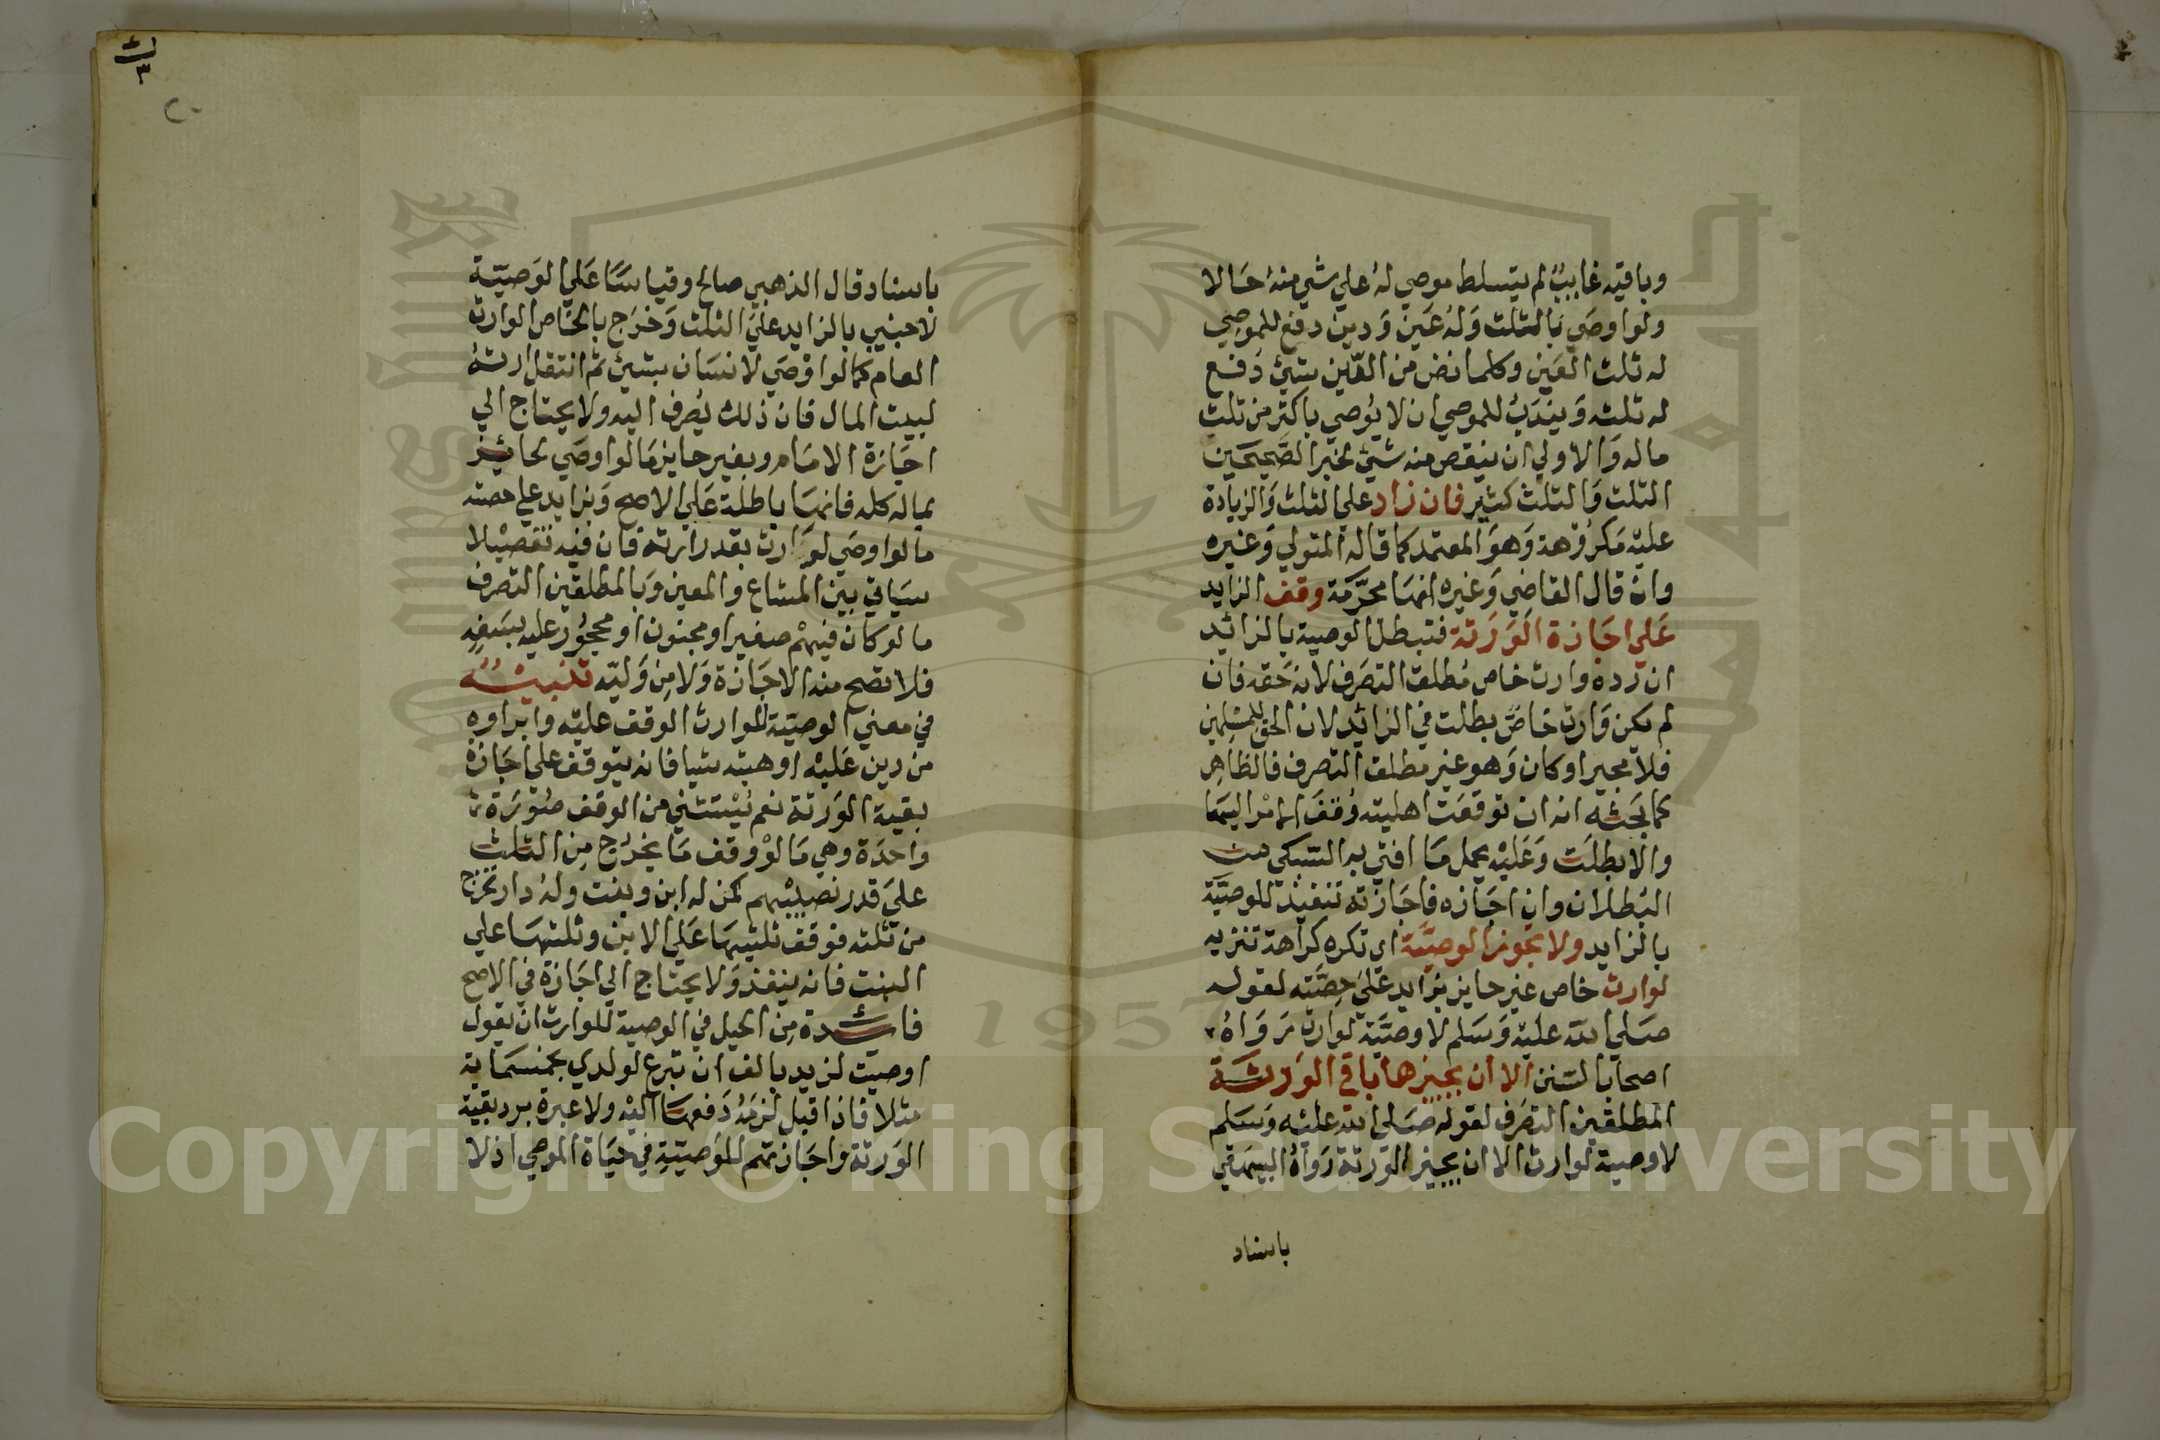 وباقيه غايب لم يتسلط موصي له علي شي منه حالا
ولو اوصي بالثلث وله عين ودين دفع للموصي
له ثلث العين وكلما نض من الدين شيئ دفع
له ثلثه ويندب للموصي ان لا يوصي باكثر من ثلث
ماله والاولي ان ينقص منه شيئ لخبر الصحيحين
الثلث والثلث كثير فان زاد علي الثلث والزيادة
عليه مكروهة وهو المعتمد كما قاله المتولي وغيره
وان قال القاضي وغيره انها محرمة وقف الزايد
علي اجازة الورثة فتبطل الوصية بالزائد
ان رده وارث خاص مطلق التصرف لانه حقه فان
لم يكن وارث خاص بطلت في الزائد لان الحق للمسلمين
فلا مجيز او كان وهو غير مطلق التصرف فالظاهر
كما بحثه انه ان توقعت اهليته وقف الامر اليها
والا بطلت وعليه يحمل ما افتي به السبكي من
البطلان وان اجازه فاجازته تنفيذ للوصية
بالزايد ولا تجوز الوصية اي تكره كراهة تنزيه
لوارث خاص غير حايز بزايد علي حصته لقوله
صلي الله عليه وسلم لا وصية لوارث رواه
اصحاب السنن الا ان يجيزها باقي الورثة
المطلقين التصرف لقوله صلي الله عليه وسلم
لا وصية لوارث الا ان يجيز الورثة رواه البيهقي
باسناد
باسناد قال الذهبي صالح وقياسا علي الوصية
لاجنبي بالزايد علي الثلث وخرج بالخاص الوارث
العام كما لو اوصي لانسان بشيئ ثم انتقل ارثه
لبيت المال فان ذلك يصرف اليه ولا يحتاج الي
اجازة الامام وبغير حايز ما لو اوصي لحائيز
بماله كله فانها باطلة علي الاصح وبزايد علي حصته
ما لو اوصي لوارث بقدر ارثه فان فيه تفصيلا
سياتي بين المشاع والمعين وبالمطلقين التصرف
ما لو كان فيهم صغير او مجنون او محجور عليه بسفه
فلا تصح منه الاجازة ولا من وليه تنبيه
في معني الوصية للوارث الوقف عليه وابراوه
من دين عليه او هبته شيا فانه يتوقف علي اجازة
بقية الورثة نعم يستثني من الوقف صورة
واحدة وهي ما لو وقف ما يخرج من الثلث
علي قدر نصيبهم كمن له ابن وبنت وله دار تخرج
من ثلثه فوقف ثلثيها علي الابن وثلثها علي
البنت فانه ينفذ ولا يحتاج الي اجازة في الاصح
فائدة من الحيل في الوصية للوارث ان يقول
اوصيت لزيد بالف ان تبرع لولدي بخمسماية
مثلا فاذا قبل لزمه دفعها اليه ولا عبرة برد بقية
الورثة واجازتهم للوصية في حياة الموصي اذ لا
Copyright © King Saud University
1957